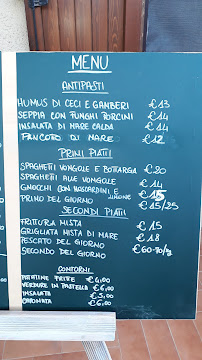 MENU
ANTIPASTI
HUMUS DI CECI E GAMBERI €13
SEPPIA CON FUNGHI PORCINI €14
INSALATA DI MARE CALDA €14
PANCOTTO DI MARE €12
PRIMI PIATTI
SPAGHETTI VONGOLE E BOTTARGA €20
SPAGHETTI ALLE VONGOLE
GNOCCHI CON MASCARDINI E LIMONE €14
PRIMO DEL GIORNO €15/25
SECONDI PIATTI
FRITTURA MISTA €15
GRIGLIATA MISTA DI MARE €18
PESCATO DEL GIORNO
SECONDO DEL GIORNO €60-70/kg
CONTORNI
PATATINE FRITTE €4,00
VERDURE IN PASTELLA €6,00
INSALATA €5,00
CAPONATA €6,00